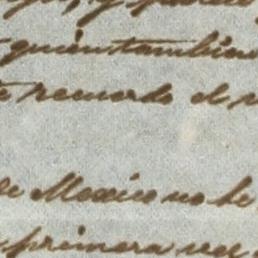 y
quien tambien
recuerdo el
de Mexico no he
primera vez